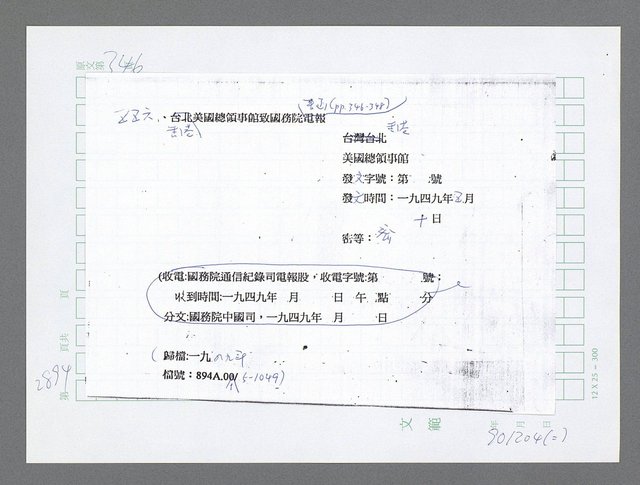 原文第 346
五五六、台北美國總領事館致國務院電報
香港
(pp.346-348)
台灣台北 香港
美國總領事館
發文字號：第 號
發文時間：一九四九年五月
十日
密等：密
(收電:國務院通信紀錄司電報股，收電字號:第 號；
收到時間:一九四九年 月 日 午 點 分
分文:國務院中國司，一九四九年 月 日
(歸檔:一九八九年
檔號：894A.00/ (5-1049)
頁
頁共
2894
第
12 X 25 - 300
文範
年 月 日
901204(二)